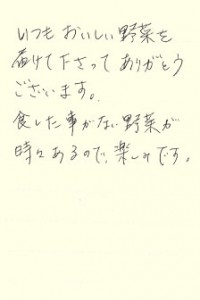 いつも おいしい 野菜を
届けて下さって ありがとう
ございます。
食した事がない野菜が
時々あるので、楽しみです。